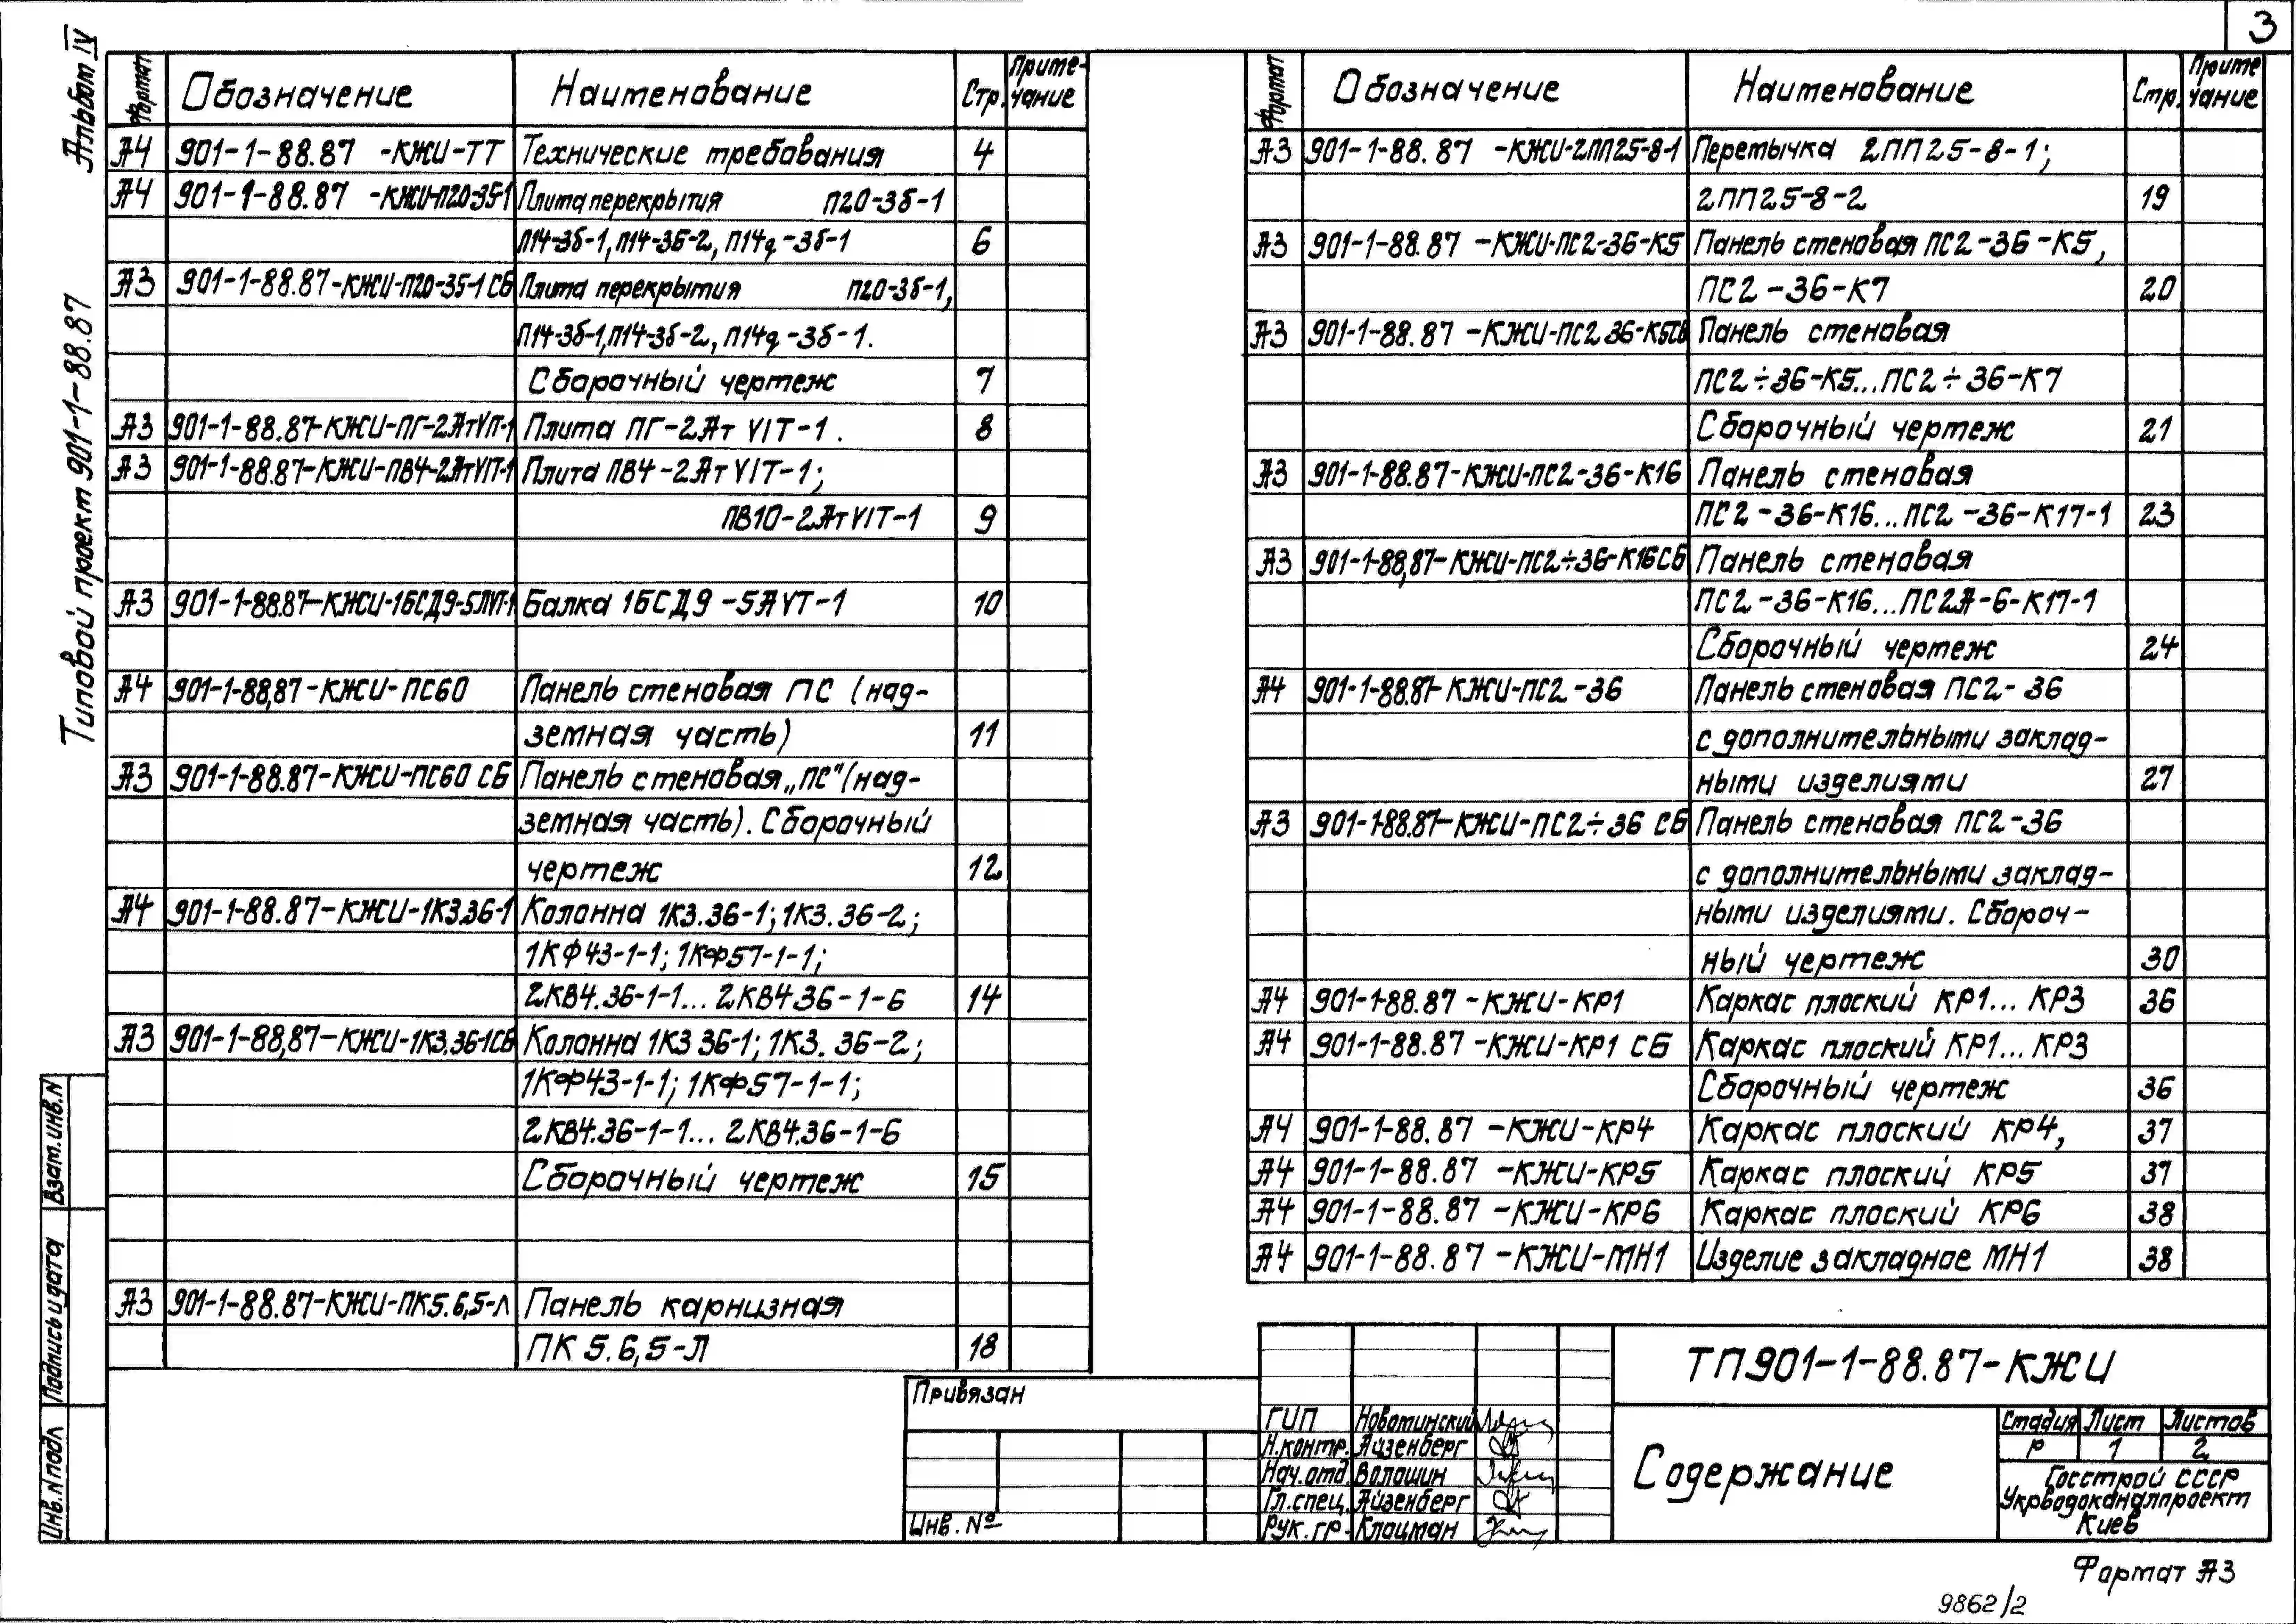 3
Альбом IV
Типовой проект 901-1-88.87
Формат Обозначение Наименование Стр. Примечание
А4 901-1-88.87 -КЖИ-ТТ Технические требования 4
А4 901-1-88.87 -КЖИ-П20-35-1 Плита перекрытия П20-3б-1
П14-3б-1, П14-3б-2, П14д-3б-1 6
А3 901-1-88.87-КЖИ-П20-35-1 СБ Плита перекрытия П20-3б-1,
П14-3б-1, П14-3б-2, П14д-3б-1.
Сборочный чертеж 7
А3 901-1-88.87-КЖИ-ПГ-2АтVIT-1 Плита ПГ-2Ат VIT-1. 8
А3 901-1-88.87-КЖИ-ПВ4-2АтVIT-1 Плита ПВ4-2Ат VIT-1;
ПВ10-2АтVIT-1 9
А3 901-1-88.87-КЖИ-1БСД9-5АVT-1 Балка 1БСД9-5АVT-1 10
А4 901-1-88,87-КЖИ-ПС60 Панель стеновая ПС (над-
земная часть) 11
А3 901-1-88.87-КЖИ-ПС60 СБ Панель стеновая „ПС" (над-
земная часть). Сборочный
чертеж 12
А4 901-1-88.87-КЖИ-1К3.36-1 Колонна 1К3.36-1; 1К3.36-2;
1КФ43-1-1; 1КФ57-1-1;
2КВ4.36-1-1... 2КВ436-1-6 14
А3 901-1-88,87-КЖИ-1К3.36-1СБ Колонна 1К3 36-1; 1К3. 36-2;
1КФ43-1-1; 1КФ57-1-1;
2КВ4.36-1-1... 2КВ4.36-1-6
Сборочный чертеж 15
А3 901-1-88.87-КЖИ-ПК5.6,5-Л Панель карнизная
ПК 5.6,5-Л 18
Формат Обозначение Наименование Стр. Примечание
А3 901-1-88.87 -КЖИ-2ПП25-8-1 Перемычка 2ПП25-8-1;
2ПП25-8-2 19
А3 901-1-88.87 -КЖИ-ПС2-36-К5 Панель стеновая ПС2-36-К5,
ПС2-36-К7 20
А3 901-1-88.87 -КЖИ-ПС2 36-К5СБ Панель стеновая
ПС2÷36-К5...ПС2÷36-К7
Сборочный чертеж 21
А3 901-1-88.87-КЖИ-ПС2-36-К16 Панель стеновая
ПС2-36-К16...ПС2-36-К17-1 23
А3 901-1-88,87-КЖИ-ПС2÷36-К16СБ Панель стеновая
ПС2-36-К16...ПС2А-6-К17-1
Сборочный чертеж 24
А4 901-1-88.87-КЖИ-ПС2-36 Панель стеновая ПС2-36
с дополнительными заклад-
ными изделиями 27
А3 901-1-88.87-КЖИ-ПС2÷36 СБ Панель стеновая ПС2-36
с дополнительными заклад-
ными изделиями. Сбороч-
ный чертеж 30
А4 901-1-88.87 -КЖИ-КР1 Каркас плоский КР1... КР3 36
А4 901-1-88.87 -КЖИ-КР1 СБ Каркас плоский КР1... КР3
Сборочный чертеж 36
А4 901-1-88.87 -КЖИ-КР4 Каркас плоский КР4, 37
А4 901-1-88.87 -КЖИ-КР5 Каркас плоский КР5 37
А4 901-1-88.87 -КЖИ-КР6 Каркас плоский КР6 38
А4 901-1-88.87 -КЖИ-МН1 Изделие закладное МН1 38
Взам.инв.N
Подпись и дата
Инв.N подл
Привязан
Инв. №
ГИП Новотинский
Н.контр. Айзенберг
Нач.отд. Волошин
Гл.спец. Айзенберг
Рук.гр. Клоцман
ТП901-1-88.87-КЖИ
Содержание
Стадия Лист Листов
Р 1 2
Госстрой СССР
Укрводоканалпроект
Киев
Формат А3
9862/2